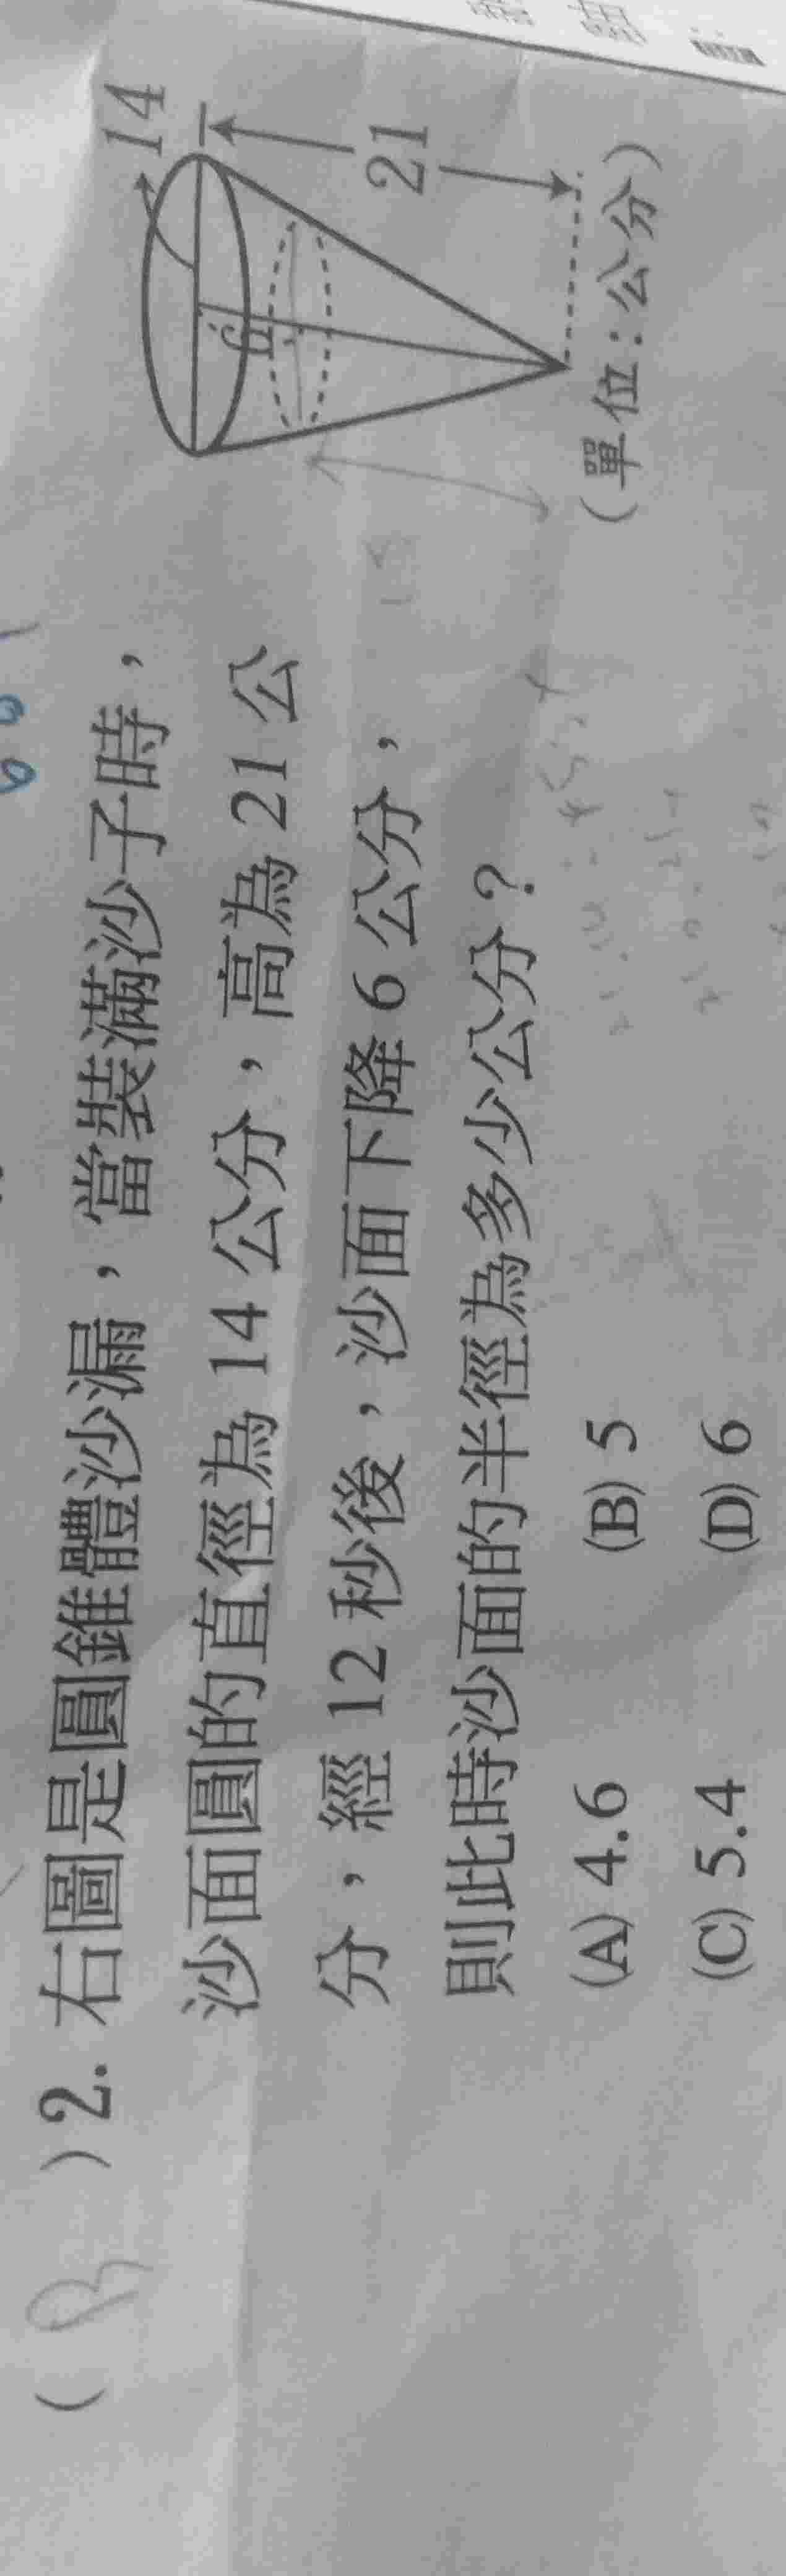 ( B ) 2. 右圖是圓錐體沙漏，當裝滿沙子時，
沙面圓的直徑為 14 公分，高為 21 公
分，經 12 秒後，沙面下降 6 公分，
則此時沙面的半徑為多少公分？
(A) 4.6 (B) 5
(C) 5.4 (D) 6
14
21
6
15
(單位：公分)